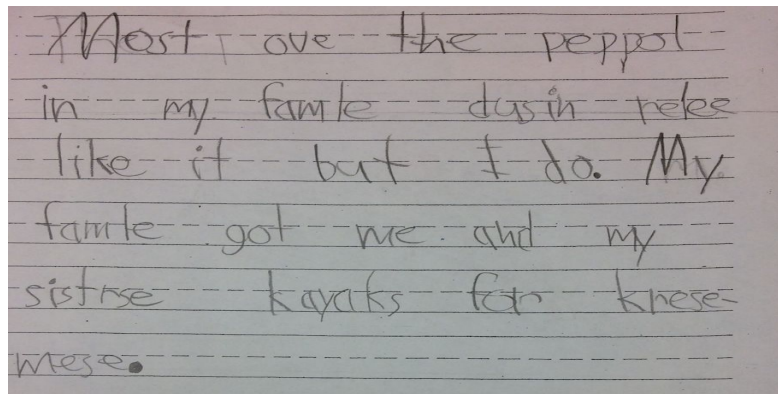 Most ove the peppol
in my famle dusin relee
like it but I do. My
famle got me and my
sistrse kayaks for krese-
mese.